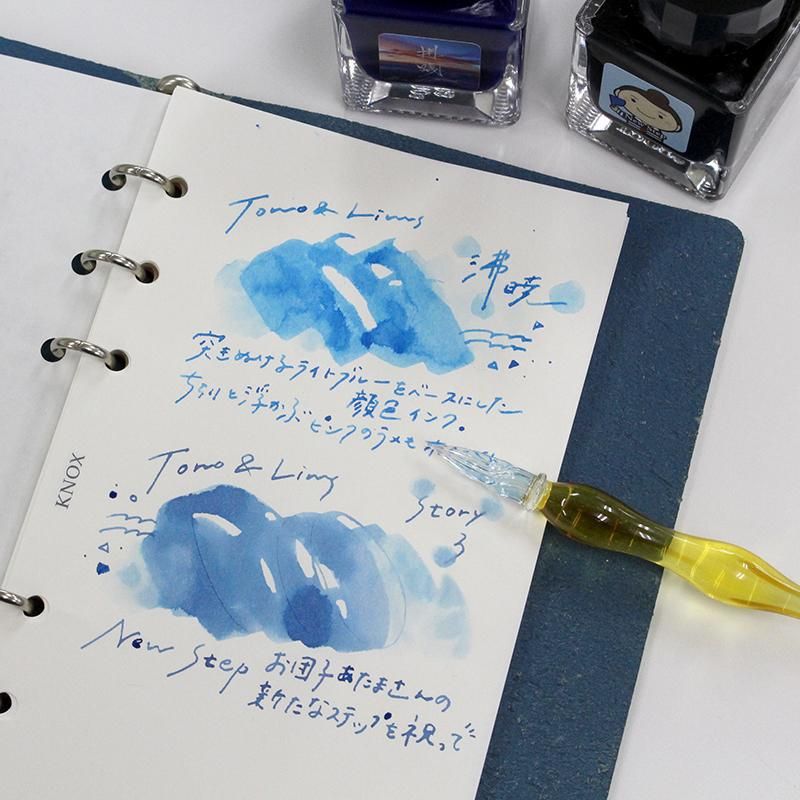 Tono & Lims
沸暁
突きぬけるライトブルーをベースにした
顔色インク。
ちらりと浮かぶピンクのラメも
KNOX
Tono & Lims
Story
3
New Step お団子あたまさんの
新たなステップを祝って